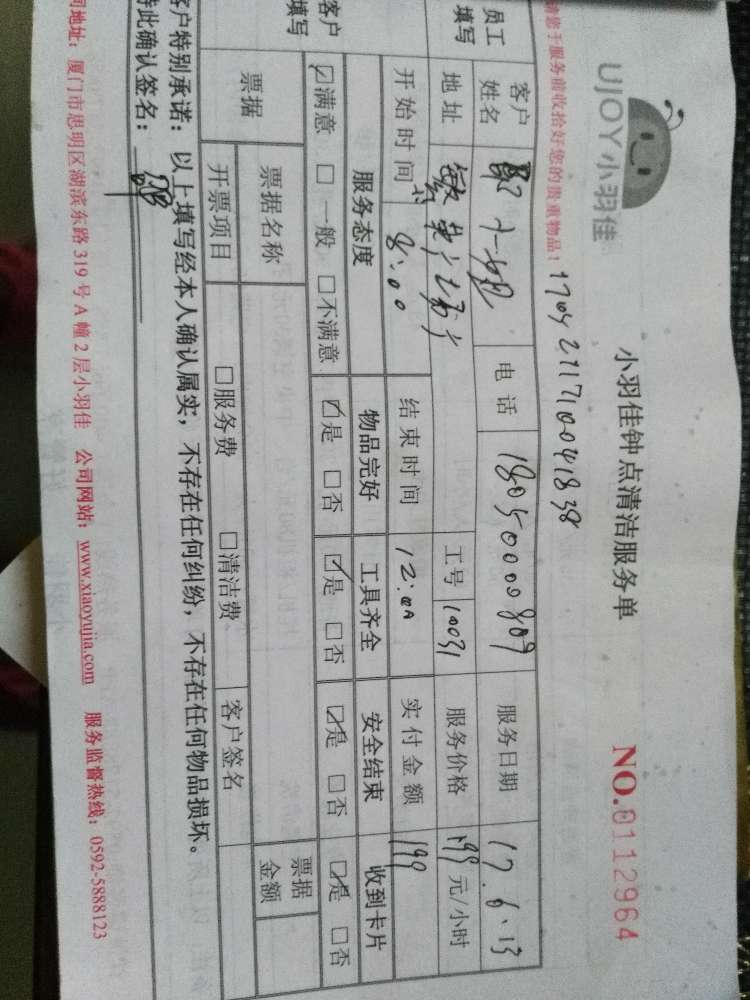 UJOY小羽佳
小羽佳钟点清洁服务单
NO.0112964
请您于服务前收拾好您的贵重物品!
员工填写
客户姓名 电话 18050000809 服务日期 17.6.13
地址 工号 10031 服务价格 199 元/小时
开始时间 8:00 结束时间 12:00 实付金额 199
客户填写
服务态度 物品完好 工具齐全 安全结束 收到卡片
☑满意 □一般 □不满意 ☑是 □否 ☑是 □否 ☑是 □否 ☑是 □否
票据 票据名称 票据金额
开票项目 □服务费 □清洁费 客户签名
客户特别承诺：以上填写经本人确认属实，不存在任何纠纷，不存在任何物品损坏。
特此确认签名：
司地址：厦门市思明区湖滨东路319号A幢2层小羽佳 公司网站：www.xiaoyujia.com 服务监督热线：0592-5888123